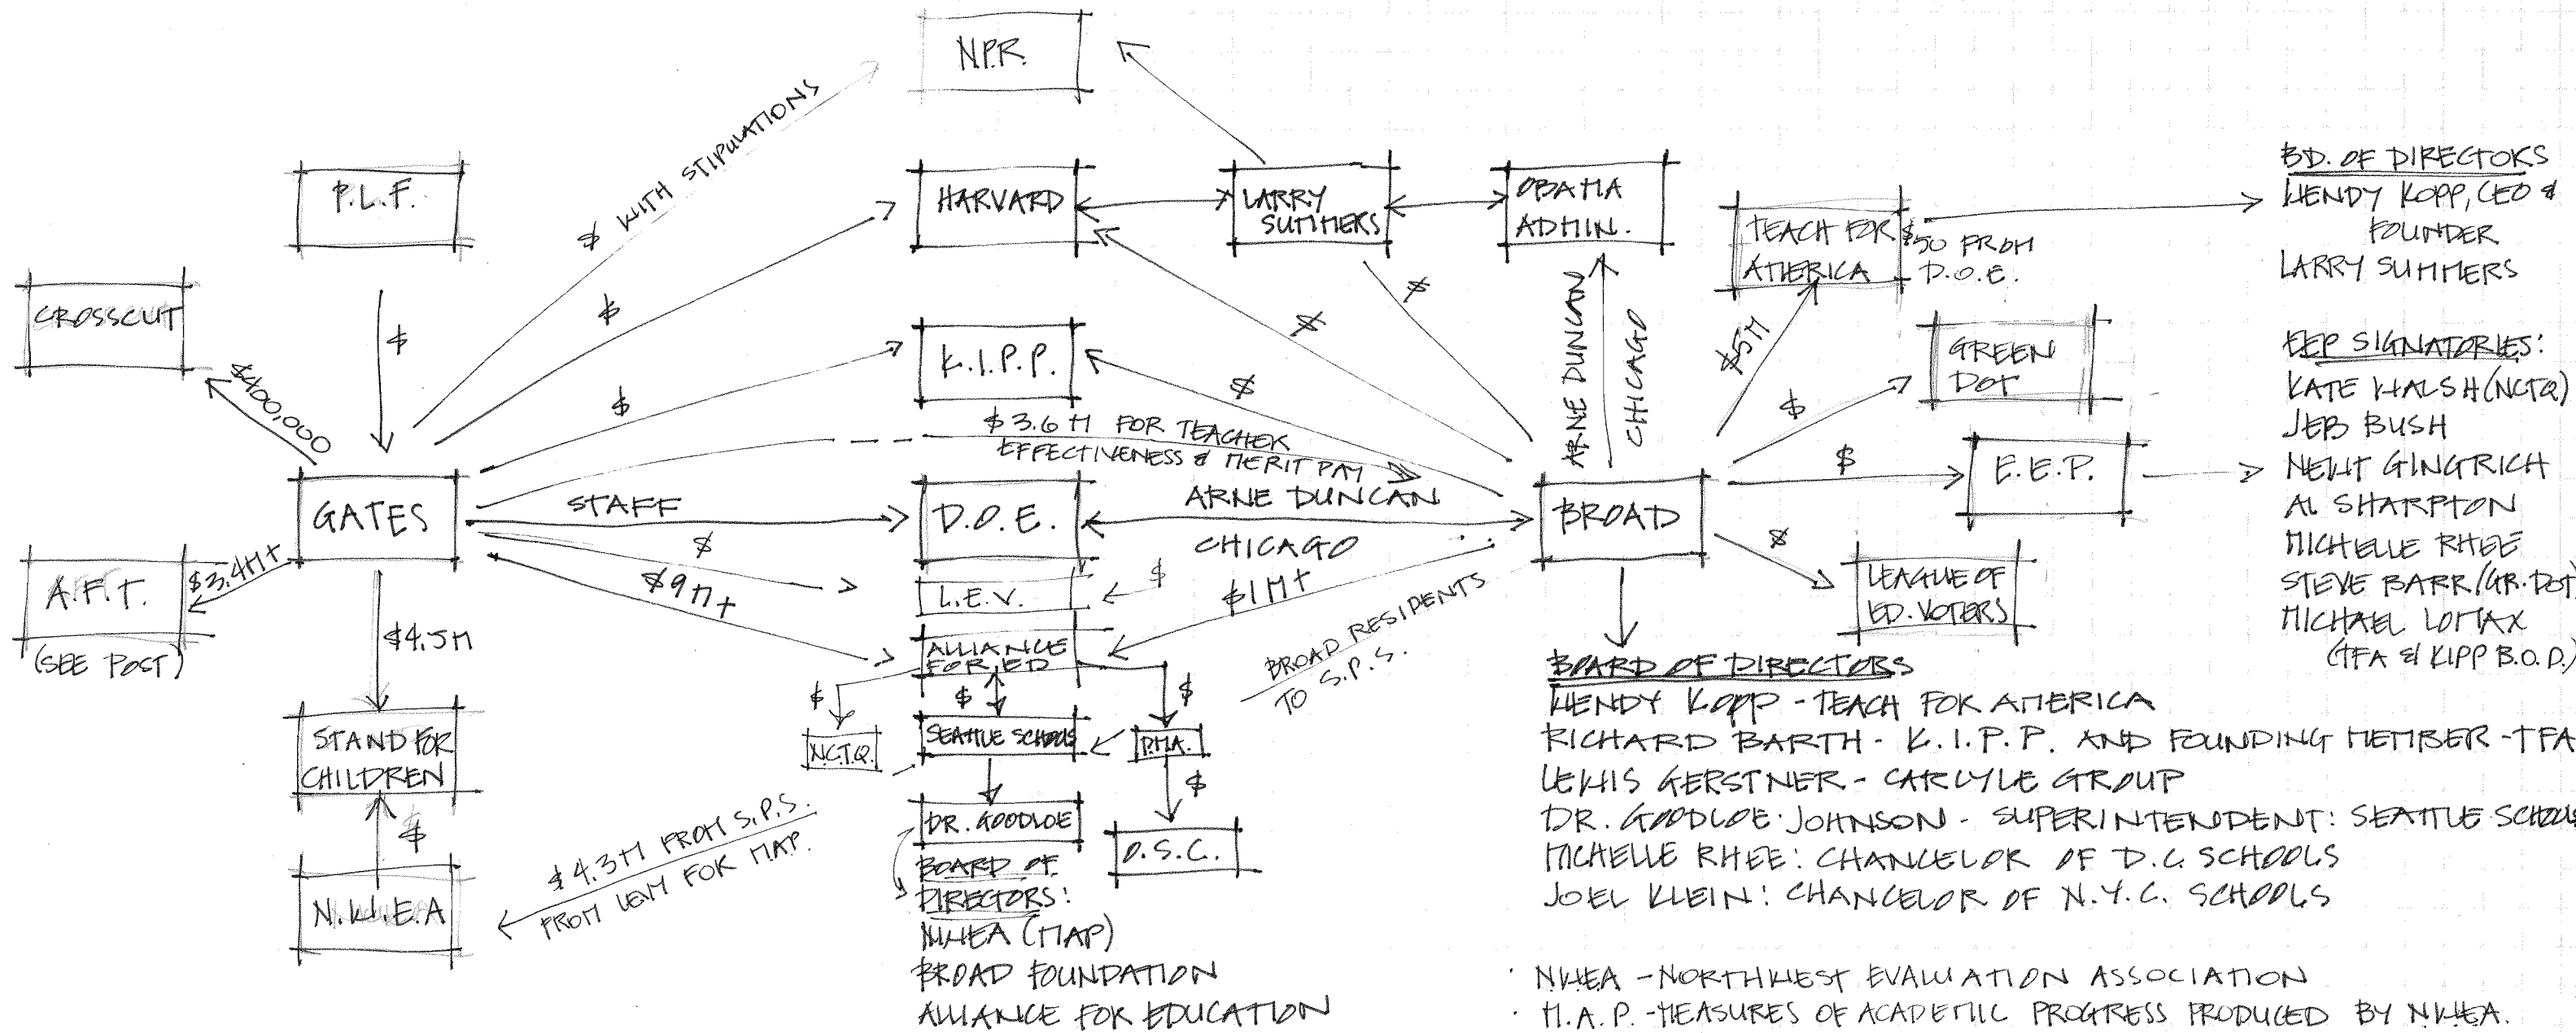 N.P.R.
$ WITH STIPULATIONS
P.L.F.
HARVARD
LARRY
SUMMERS
OBAMA
ADMIN.
TEACH FOR
AMERICA
$50 FROM
D.O.E.
BD. OF DIRECTORS
WENDY KOPP, CEO &
FOUNDER
LARRY SUMMERS
CROSSCUT
$400,000
$
$
K.I.P.P.
$
$
$
$
ARNE DUNCAN
CHICAGO
$5M
GREEN
DOT
$
EEP SIGNATORIES:
KATE WALSH (NCTQ)
JEB BUSH
NEWT GINGRICH
AL SHARPTON
MICHELLE RHEE
STEVE BARR/(GR. DOT)
MICHAEL LOMAX
(TFA & KIPP B.O.D.)
$3.6 M FOR TEACHER
EFFECTIVENESS & MERIT PAY
GATES
STAFF
D.O.E.
ARNE DUNCAN
CHICAGO
BROAD
$
E.E.P.
$
LEAGUE OF
ED. VOTERS
A.F.T.
(SEE POST)
$3.4M+
$
$9M+
L.E.V.
$
$1M+
BROAD RESIDENTS
TO S.P.S.
ALLIANCE
FOR ED
$4.5M
$
$
$
N.C.T.Q.
SEATTLE SCHOOLS
D.M.A.
$
STAND FOR
CHILDREN
$
N.W.E.A
$4.3M FROM S.P.S.
FROM LEVY FOR MAP.
DR. GOODLOE
O.S.C.
BOARD OF
DIRECTORS:
NWEA (MAP)
BROAD FOUNDATION
ALLIANCE FOR EDUCATION
BOARD OF DIRECTORS
WENDY KOPP - TEACH FOR AMERICA
RICHARD BARTH - K.I.P.P. AND FOUNDING MEMBER - TFA
LEWIS GERSTNER - CARLYLE GROUP
DR. GOODLOE-JOHNSON - SUPERINTENDENT: SEATTLE SCHOOLS
MICHELLE RHEE: CHANCELOR OF D.C. SCHOOLS
JOEL KLEIN: CHANCELOR OF N.Y.C. SCHOOLS
· NWEA - NORTHWEST EVALUATION ASSOCIATION
· M.A.P. - MEASURES OF ACADEMIC PROGRESS PRODUCED BY NWEA.